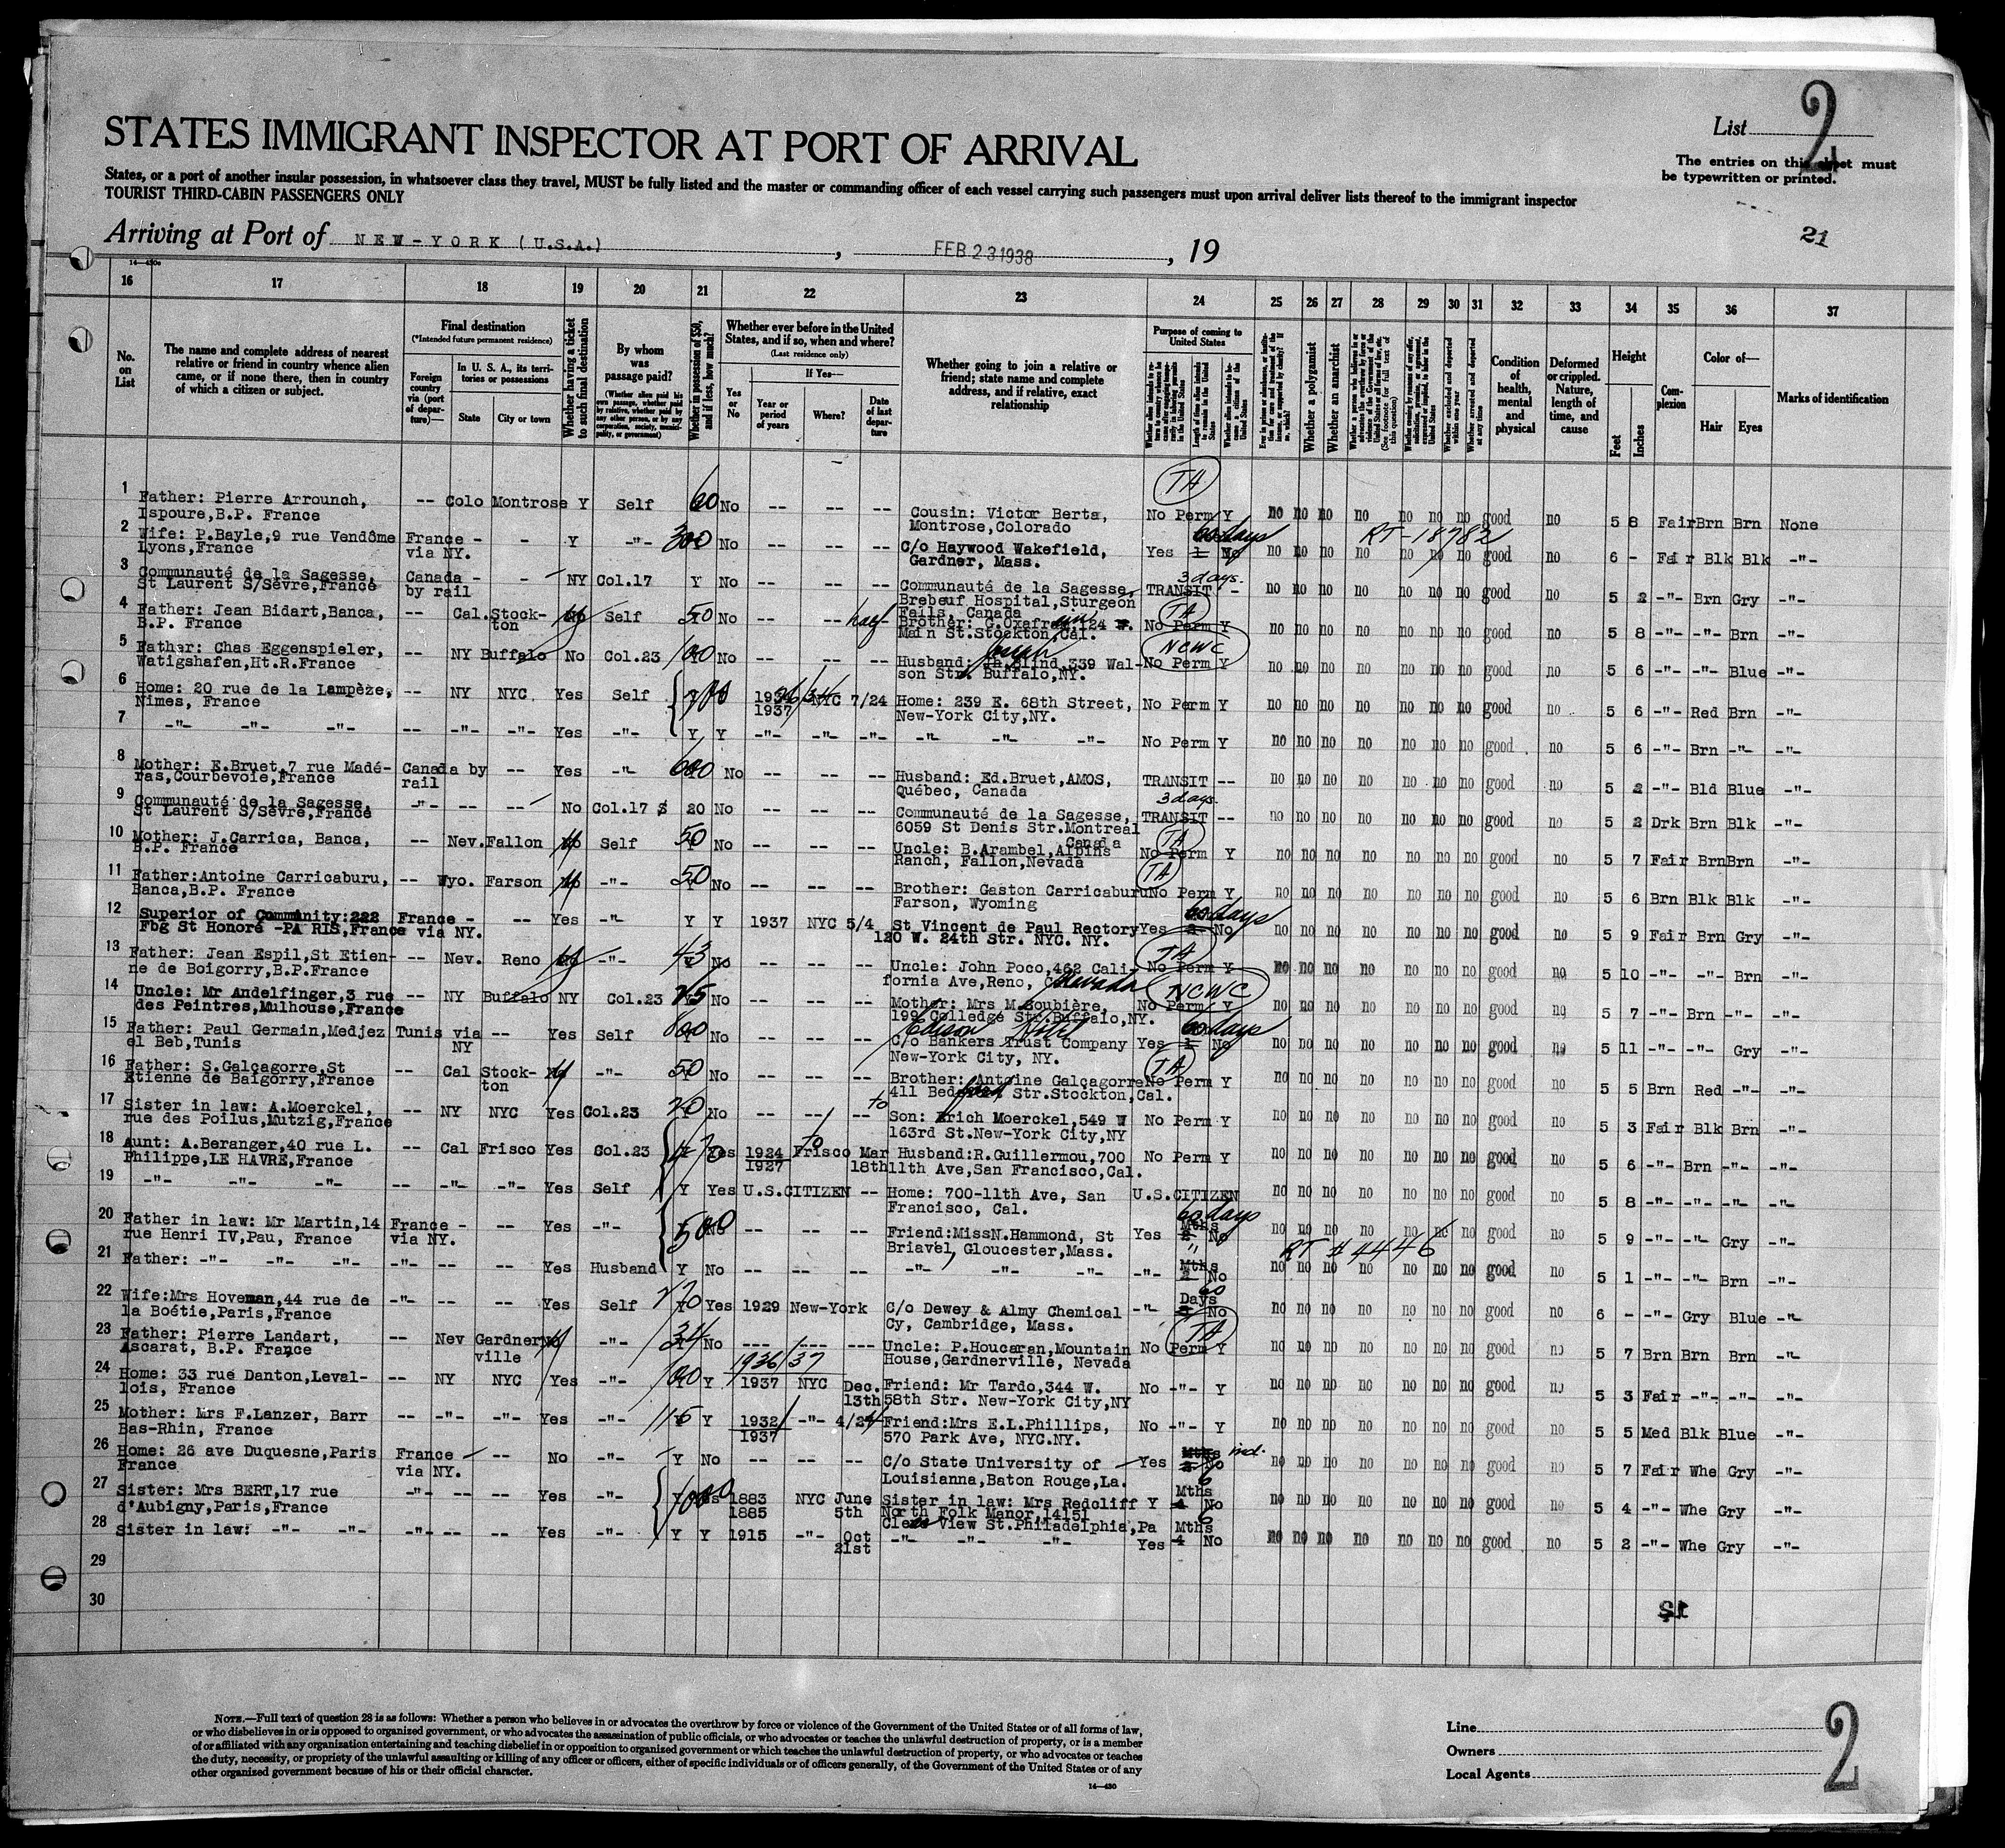 2
List
STATES IMMIGRANT INSPECTOR AT PORT OF ARRIVAL
The entries on this sheet must
be typewritten or printed.
States, or a port of another insular possession, in whatsoever class they travel, MUST be fully listed and the master or commanding officer of each vessel carrying such passengers must upon arrival deliver lists thereof to the immigrant inspector
TOURIST THIRD-CABIN PASSENGERS ONLY
21
Arriving at Port of NEW-YORK (U.S.A.) , FEB 23 1938 , 19
16 17 18 19 20 21 22 23 24 25 26 27 28 29 30 31 32 33 34 35 36 37
No. on List
The name and complete address of nearest relative or friend in country whence alien came, or if none there, then in country of which a citizen or subject.
Final destination
(*Intended future permanent residence)
Foreign country via (port of departure)—
In U. S. A., its territories or possessions
State City or town
Whether having a ticket to such final destination
By whom was passage paid?
(Whether alien paid his own passage, whether paid by relative, whether paid by any other person, or by any corporation, society, municipality, or government)
Whether in possession of $50, and if less, how much?
Whether ever before in the United States, and if so, when and where?
(Last residence only)
Yes or No
If Yes—
Year or period of years
Where?
Date of last departure
Whether going to join a relative or friend; state name and complete address, and if relative, exact relationship
Purpose of coming to United States
Whether a polygamist
Whether an anarchist
Condition of health, mental and physical
Deformed or crippled. Nature, length of time, and cause
Height
Feet Inches
Complexion
Color of—
Hair Eyes
Marks of identification
1 Father: Pierre Arrounch, -- Colo Montrose Y Self 60 No -- -- -- Cousin: Victor Berta, No Perm Y no no no no no no no good no 5 8 Fair Brn Brn None
Ispoure,B.P. France Montrose,Colorado TA
2 Wife: P.Bayle,9 rue Vendôme France - - Y -"- 300 No -- -- -- C/o Haywood Wakefield, Yes 60 days No no no no no no no no good no 6 - Fair Blk Blk -"-
Lyons,France via NY. Gardner, Mass. RT-18782
3 Communauté de la Sagesse, Canada - - NY Col.17 Y No -- -- -- Communauté de la Sagesse, TRANSIT - no no no no no no no good no 5 2 -"- Brn Gry -"-
St Laurent S/Sèvre,France by rail Brebeuf Hospital,Sturgeon Falls, Canada 3 days.
4 Father: Jean Bidart,Banca, -- Cal. Stock- Self 50 No -- -- -- No Perm Y no no no no no no no good no 5 8 -"- -"- Brn -"-
B.P. France ton Main St.Stockton,Cal. TA
5 Father: Chas Eggenspieler, -- NY Buffalo No Col.23 100 No -- -- -- Husband: Joseph Blind,339 Wal- No Perm Y no no no no no no no good no 5 6 -"- -"- Blue -"-
Watigshafen,Ht.R.France son Str. Buffalo,NY. NCWC
6 Home: 20 rue de la Lampèze, -- NY NYC Yes Self 1937 NYC 7/24 Home: 239 E. 68th Street, No Perm Y no no no no no no no good no 5 6 -"- Red Brn -"-
Nimes, France New-York City,NY.
7 -"- -"- -"- -- -"- -"- Yes -"- Y Y -"- -"- -"- -"- -"- -"- No Perm Y no no no no no no no good no 5 6 -"- Brn -"- -"-
8 Mother: E.Bruet,7 rue Madé- Canada by -- Yes -"- 600 No -- -- -- Husband: Ed.Bruet,AMOS, TRANSIT -- no no no no no no no good no 5 2 -"- Bld Blue -"-
ras,Courbevoie,France rail Québec, Canada
9 Communauté de la Sagesse, -"- -- -- No Col.17 $ 20 No -- -- -- Communauté de la Sagesse, TRANSIT -- no no no no no no no good no 5 2 Drk Brn Blk -"-
St Laurent S/Sèvre,France 6059 St Denis Str.Montreal Canada 3 days.
10 Mother: J.Carrica, Banca, -- Nev. Fallon Self 50 No -- -- -- Uncle: B.Arambel,Alpins No Perm Y no no no no no no no good no 5 7 Fair Brn Brn -"-
B.P. France Ranch, Fallon,Nevada TA
11 Father:Antoine Carricaburu, -- Wyo. Farson -"- 50 No -- -- -- Brother: Gaston Carricaburu No Perm Y no no no no no no no good no 5 6 Brn Blk Blk -"-
Banca,B.P. France Farson, Wyoming TA
12 Superior of Community:222 France - -- Yes -"- Y Y 1937 NYC 5/4 St Vincent de Paul Rectory Yes 60 days No no no no no no no no good no 5 9 Fair Brn Gry -"-
Fbg St Honoré -PARIS,France via NY. 120 W. 24th Str. NYC. NY.
13 Father: Jean Espil,St Etien- -- Nev. Reno -"- 43 No -- -- -- Uncle: John Poco,462 Cali- No Perm Y no no no no no no no good no 5 10 -"- -"- Brn -"-
ne de Boigorry,B.P.France fornia Ave,Reno, Nevada TA
14 Uncle: Mr Andelfinger,3 rue -- NY Buffalo NY Col.23 No -- -- -- Mother: Mrs M.Soubière, No Perm Y no no no no no no no good no 5 7 -"- Brn -"- -"-
des Peintres,Mulhouse,France 199 Colledge Str.Buffalo,NY. NCWC
15 Father: Paul Germain,Medjez Tunis via -- Yes Self 800 No -- -- -- C/o Bankers Trust Company Yes 60 days No no no no no no no no good no 5 11 -"- -"- Gry -"-
el Beb,Tunis NY New-York City, NY. Edison Hotel
16 Father: S.Galçagorre,St -- Cal Stock- -"- 50 No -- -- -- Brother: Antoine Galçagorre No Perm Y no no no no no no no good no 5 5 Brn Red -"- -"-
Etienne de Baigorry,France ton 411 Bedford Str.Stockton,Cal. TA
17 Sister in law: A.Moerckel, -- NY NYC Yes Col.23 20 No -- -- Son: Erich Moerckel,549 W No Perm Y no no no no no no no good no 5 3 Fair Blk Brn -"-
rue des Poilus,Mutzig,France 163rd St.New-York City,NY
18 Aunt: A.Beranger,40 rue L. -- Cal Frisco Yes Col.23 Yes 1924 Frisco Mar Husband:R.Guillermou,700 No Perm Y no no no no no no no good no 5 6 -"- Brn -"- -"-
Philippe,LE HAVRE,France 1927 18th 11th Ave,San Francisco,Cal.
19 -"- -"- -"- -- -"- -"- Yes Self Y Yes U.S.CITIZEN -- Home: 700-11th Ave, San U.S.CITIZEN no no no no no no no good no 5 8 -"- -"- -"- -"-
Francisco, Cal.
20 Father in law: Mr Martin,14 France - -- Yes -"- 500 -- -- -- Friend:MissN.Hammond, St Yes 60 days Mths No no no no no no no no good no 5 9 -"- -"- Gry -"-
rue Henri IV,Pau, France via NY. Briavel, Gloucester,Mass. RT #44446
21 Father: -"- -"- -"- -"- -- -- Yes Husband Y No -- -- -- -"- -"- -"- -"- Mths No no no no no no no no good no 5 1 -"- -"- Brn -"-
22 Wife:Mrs Hoveman,44 rue de -"- -- -- Yes Self 270 Yes 1929 New-York C/o Dewey & Almy Chemical -"- 60 Days No no no no no no no no good no 6 - -"- Gry Blue -"-
la Boétie,Paris,France Cy, Cambridge, Mass.
23 Father: Pierre Landart, -- Nev Gardner -"- 34 No --- --- --- Uncle: P.Houcaran,Mountain No Perm Y no no no no no no no good no 5 7 Brn Brn Brn -"-
Ascarat, B.P. France ville House,Gardnerville, Nevada TA
24 Home: 33 rue Danton,Leval- -- NY NYC Yes -"- 100 Y 1936/37 1937 NYC Dec. Friend: Mr Tardo,344 W. No -"- Y no no no no no no no good no 5 3 Fair -"- -"- -"-
lois, France 13th 58th Str. New-York City,NY
25 Mother: Mrs F.Lanzer, Barr -- -"- -"- Yes -"- 115 Y 1932 -"- 4/24 Friend:Mrs E.L.Phillips, No -"- Y no no no no no no no good no 5 5 Med Blk Blue -"-
Bas-Rhin, France 1937 570 Park Ave, NYC.NY.
26 Home: 26 ave Duquesne,Paris France -- No -"- Y No -- -- -- C/o State University of Yes Mths ind. No no no no no no no no good no 5 7 Fair Whe Gry -"-
France via NY. Louisianna,Baton Rouge,La.
27 Sister: Mrs BERT,17 rue -"- -- -- Yes -"- 1000 Yes 1883 NYC June Sister in law: Mrs Redcliff Y 6 Mths No no no no no no no no good no 5 4 -"- Whe Gry -"-
d'Aubigny,Paris,France 1885 5th North Folk Manor,14151
28 Sister in law: -"- -"- -"- -- -- Yes -"- Y Y 1915 -"- Oct 21st View St.Philadelphia,Pa -"- -"- -"- Yes 6 Mths No no no no no no no no good no 5 2 -"- Whe Gry -"-
29
30
NOTE.—Full text of question 28 is as follows: Whether a person who believes in or advocates the overthrow by force or violence of the Government of the United States or of all forms of law,
or who disbelieves in or is opposed to organized government, or who advocates the assassination of public officials, or who advocates or teaches the unlawful destruction of property, or is a member
of or affiliated with any organization entertaining and teaching disbelief in or opposition to organized government or which teaches the unlawful destruction of property, or who advocates or teaches
the duty, necessity, or propriety of the unlawful assaulting or killing of any officer or officers, either of specific individuals or of officers generally, of the Government of the United States or of any
other organized government because of his or their official character.
14—430
Line
Owners
Local Agents
2